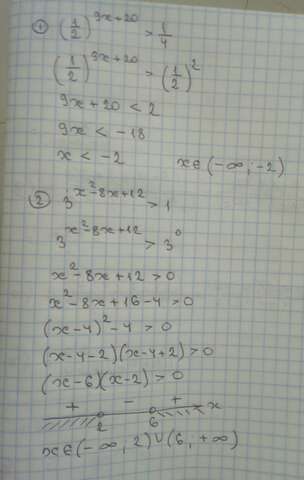 ① (1/2)^(9x+20) > 1/4
(1/2)^(9x+20) > (1/2)^2
9x+20 < 2
9x < -18
x < -2 x∈(-∞;-2)
② 3^(x²-8x+12) > 1
3^(x²-8x+12) > 3^0
x²-8x+12>0
x²-8x+16-4>0
(x-4)²-4>0
(x-4-2)(x-4+2)>0
(x-6)(x-2)>0
+ - + x
2 6
x∈(-∞,2)∪(6,+∞)